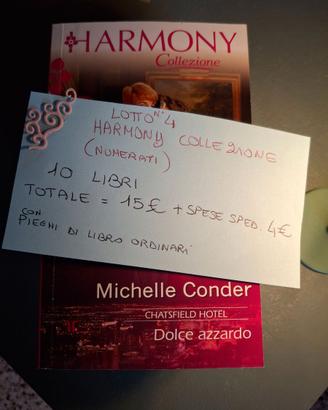 HARMONY
Collezione
LOTTO N°4
HARMONY COLLEZIONE
(NUMERATI)
10 LIBRI
TOTALE = 15€ + SPESE SPED. 4€
CON
PIEGHI DI LIBRO ORDINARI
Michelle Conder
CHATSFIELD HOTEL
Dolce azzardo